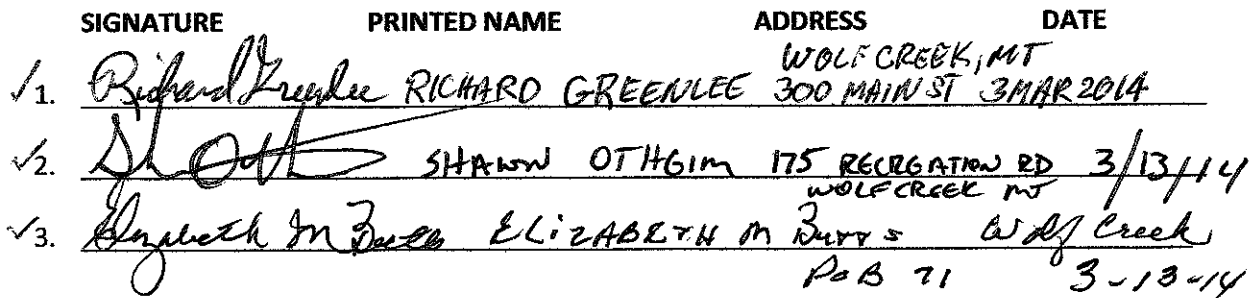 SIGNATURE PRINTED NAME ADDRESS DATE
WOLF CREEK, MT
✓1. Richard Greenlee RICHARD GREENLEE 300 MAIN ST 3 MAR 2014
✓2. SHAWN OTHGIM 175 RECREATION RD 3/13/14
WOLF CREEK MT
✓3. Elizabeth M Butts ELIZABETH M BUTTS Wolf Creek
PoB 71 3-13-14